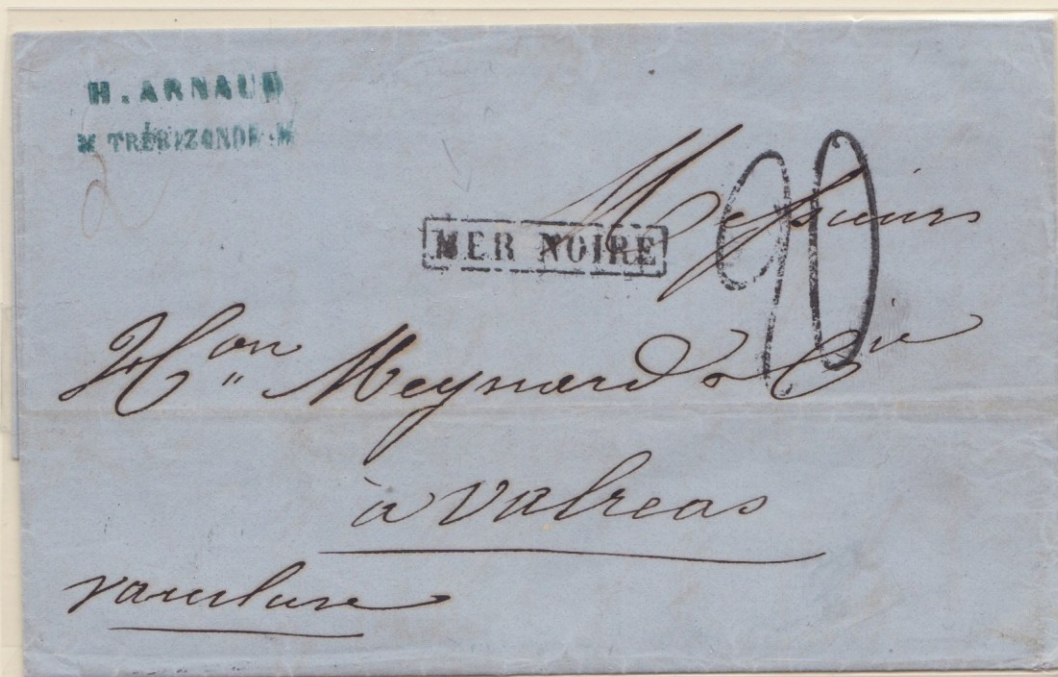 H. ARNAUD
TRÉBIZONDE
MER NOIRE
90
Messieurs
Hon Meynard & Cie
à Valreas
vaucluse